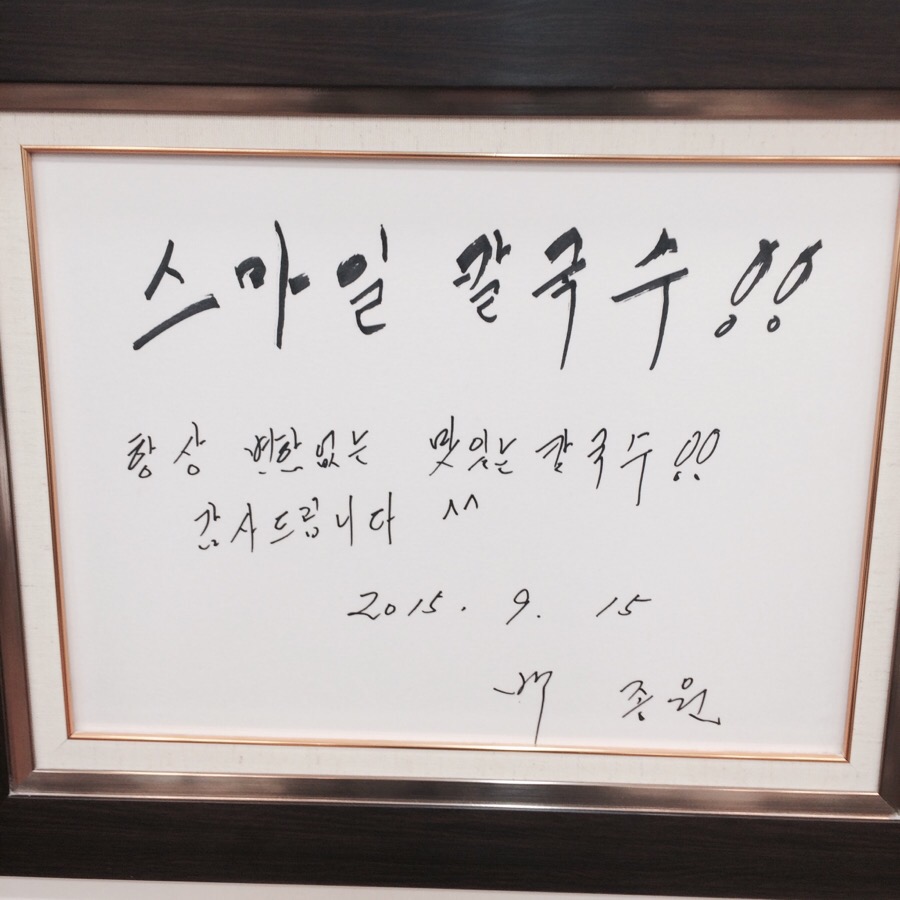 스마일 칼국수!!
항상 변함없는 맛있는 칼국수!!
감사드립니다 ^^
2015. 9. 15
백종원